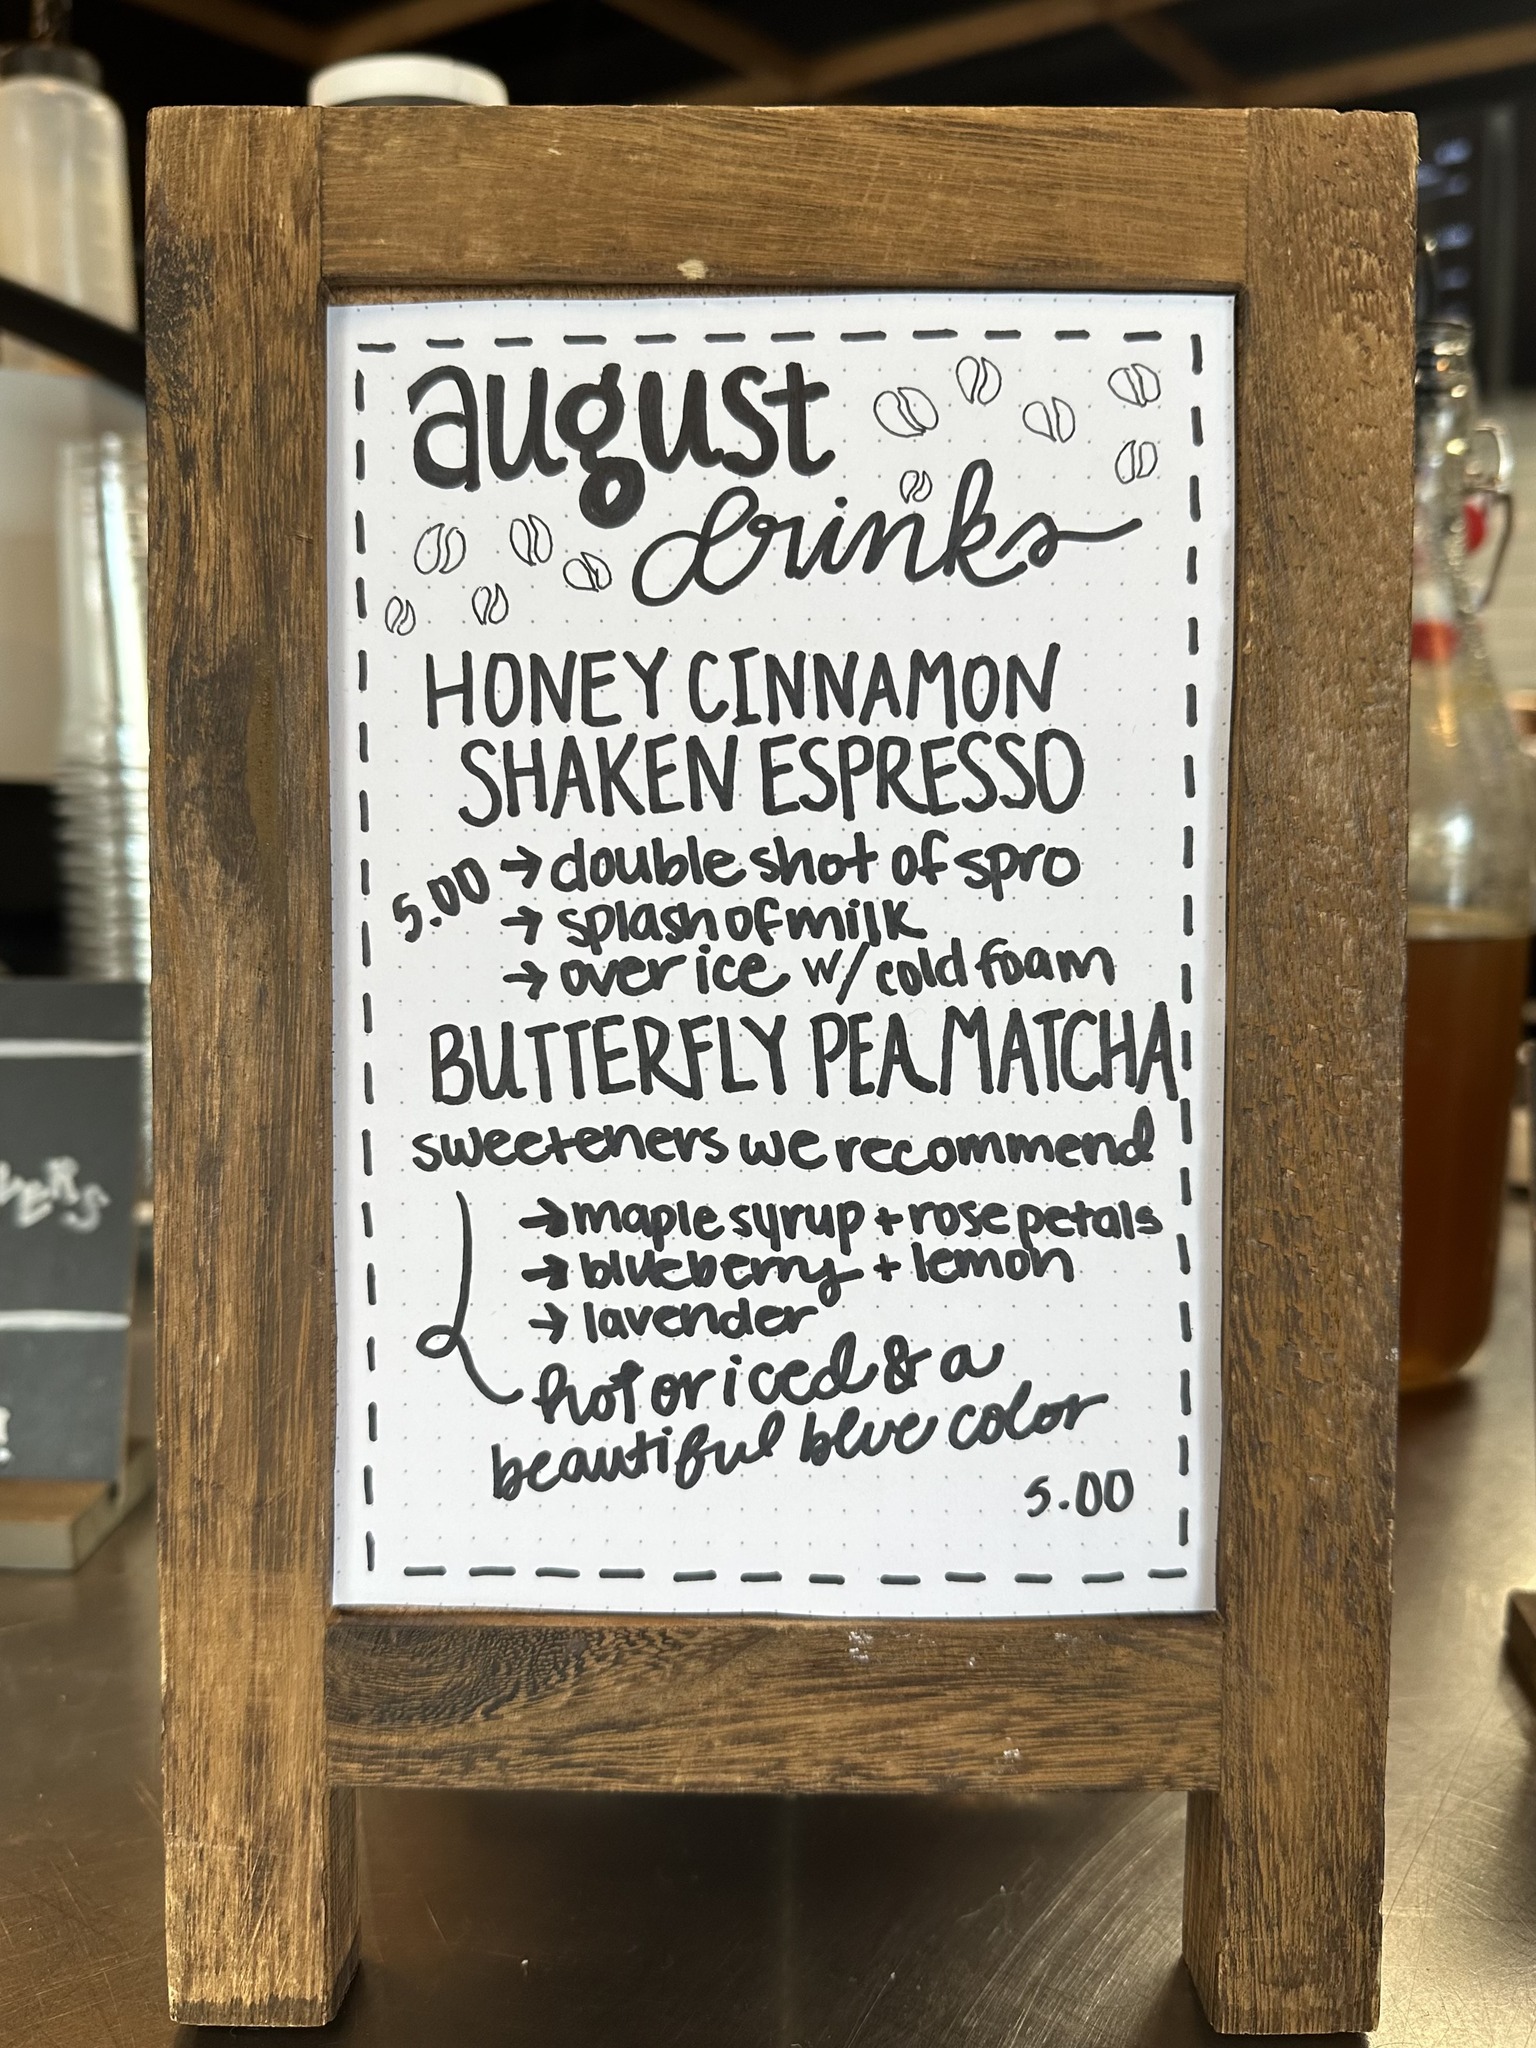 august
drinks
HONEY CINNAMON
SHAKEN ESPRESSO
5.00
→ double shot of spro
→ splash of milk
→ over ice w/ cold foam
BUTTERFLY PEA MATCHA
sweeteners we recommend
→ maple syrup + rose petals
→ blueberry + lemon
→ lavender
hot or iced & a
beautiful blue color
5.00